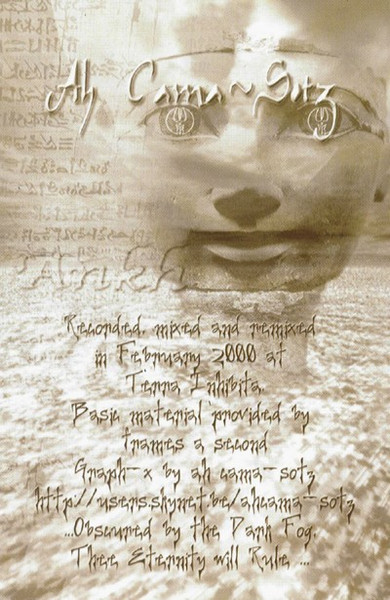 Ah Cama~Sotz
Ankh
Recorded, mixed and remixed
in February 2000 at
Terra Inhibita.
Basic material provided by
frames a second
Graph-x by ah cama-sotz
http://users.skynet.be/ahcama-sotz
...Obscured by the Dark Fog.
Thee Eternity will Rule ...